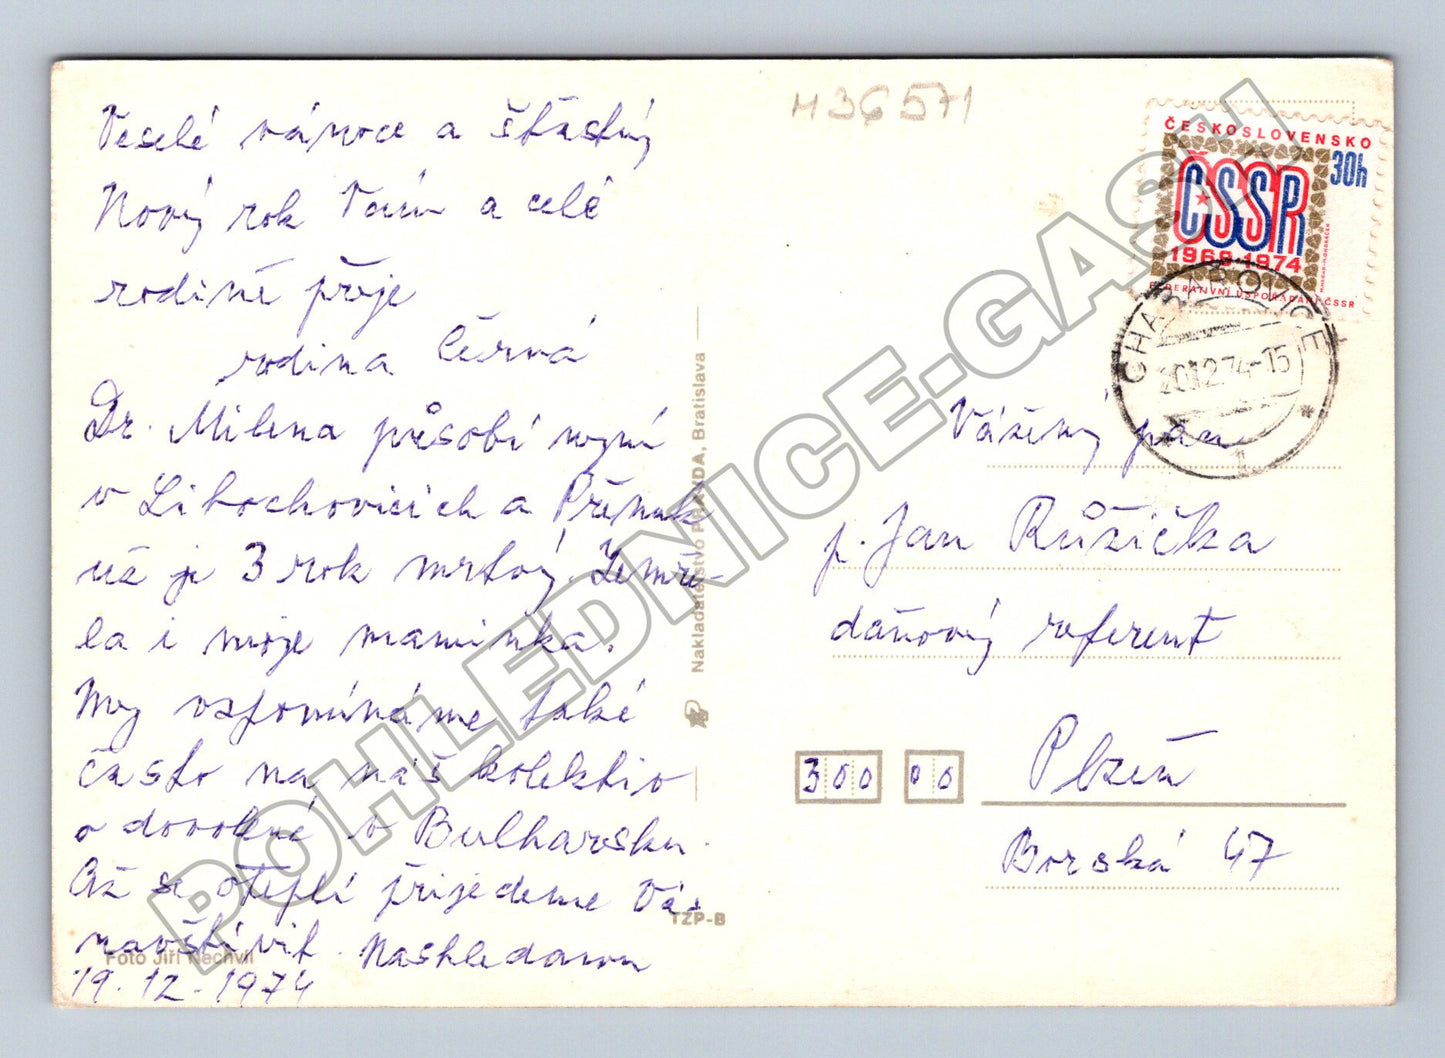 Veselé vánoce a šťastný
Nový rok Vám a celé
rodině přeje
rodina Černá
Dr. Milena působí nyní
v Libochovicích a Přenek
už je 3 rok mrtvý. Zemře-
la i moje maminka.
My vzpomínáme také
často na náš kolektiv
o dovolené v Bulharsku.
Až se oteplí přijedeme Vás
navštívit. Nashledanou
19.12.1974
Foto Jiří Nechvíl
Nakladatelství PRAVDA, Bratislava
TZP-B
H36571
ČESKOSLOVENSKO
30h
ČSSR
1969-1974
FEDERATIVNÍ USPOŘÁDÁNÍ ČSSR
CHABAŘOVICE
20.12.74-15
1
Vážený pan
p. Jan Růžička
daňový referent
300 00 Plzeň
Borská 47
POHLEDNICE-GASH